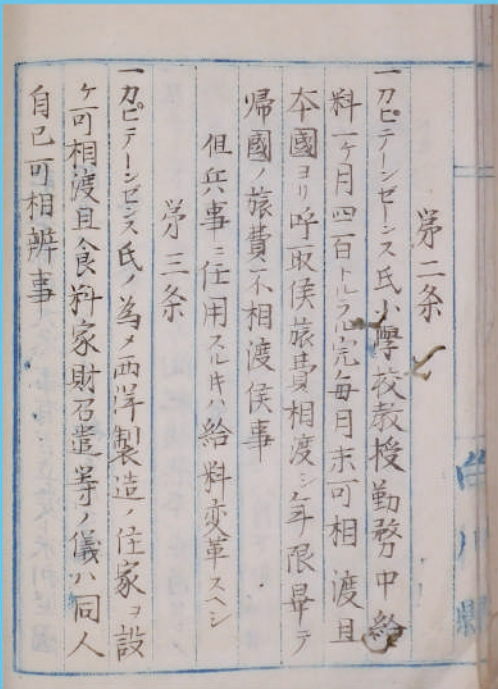 第二条
一カピテーンゼーンス氏小學校教授勤務中給
料一ケ月四百トルラル宛毎月末可相渡且
本國ヨリ呼取候旅費相渡シ年限畢テ
帰國ノ旅費ハ不相渡候事
但兵事ニ任用スル時ハ給料変革スヘシ
第三条
一カピテーンゼンス氏ノ為メ西洋製造ノ住家ヲ設
ケ可相渡且食料家財召遣等ノ儀ハ同人
自己可相辨事
白川縣